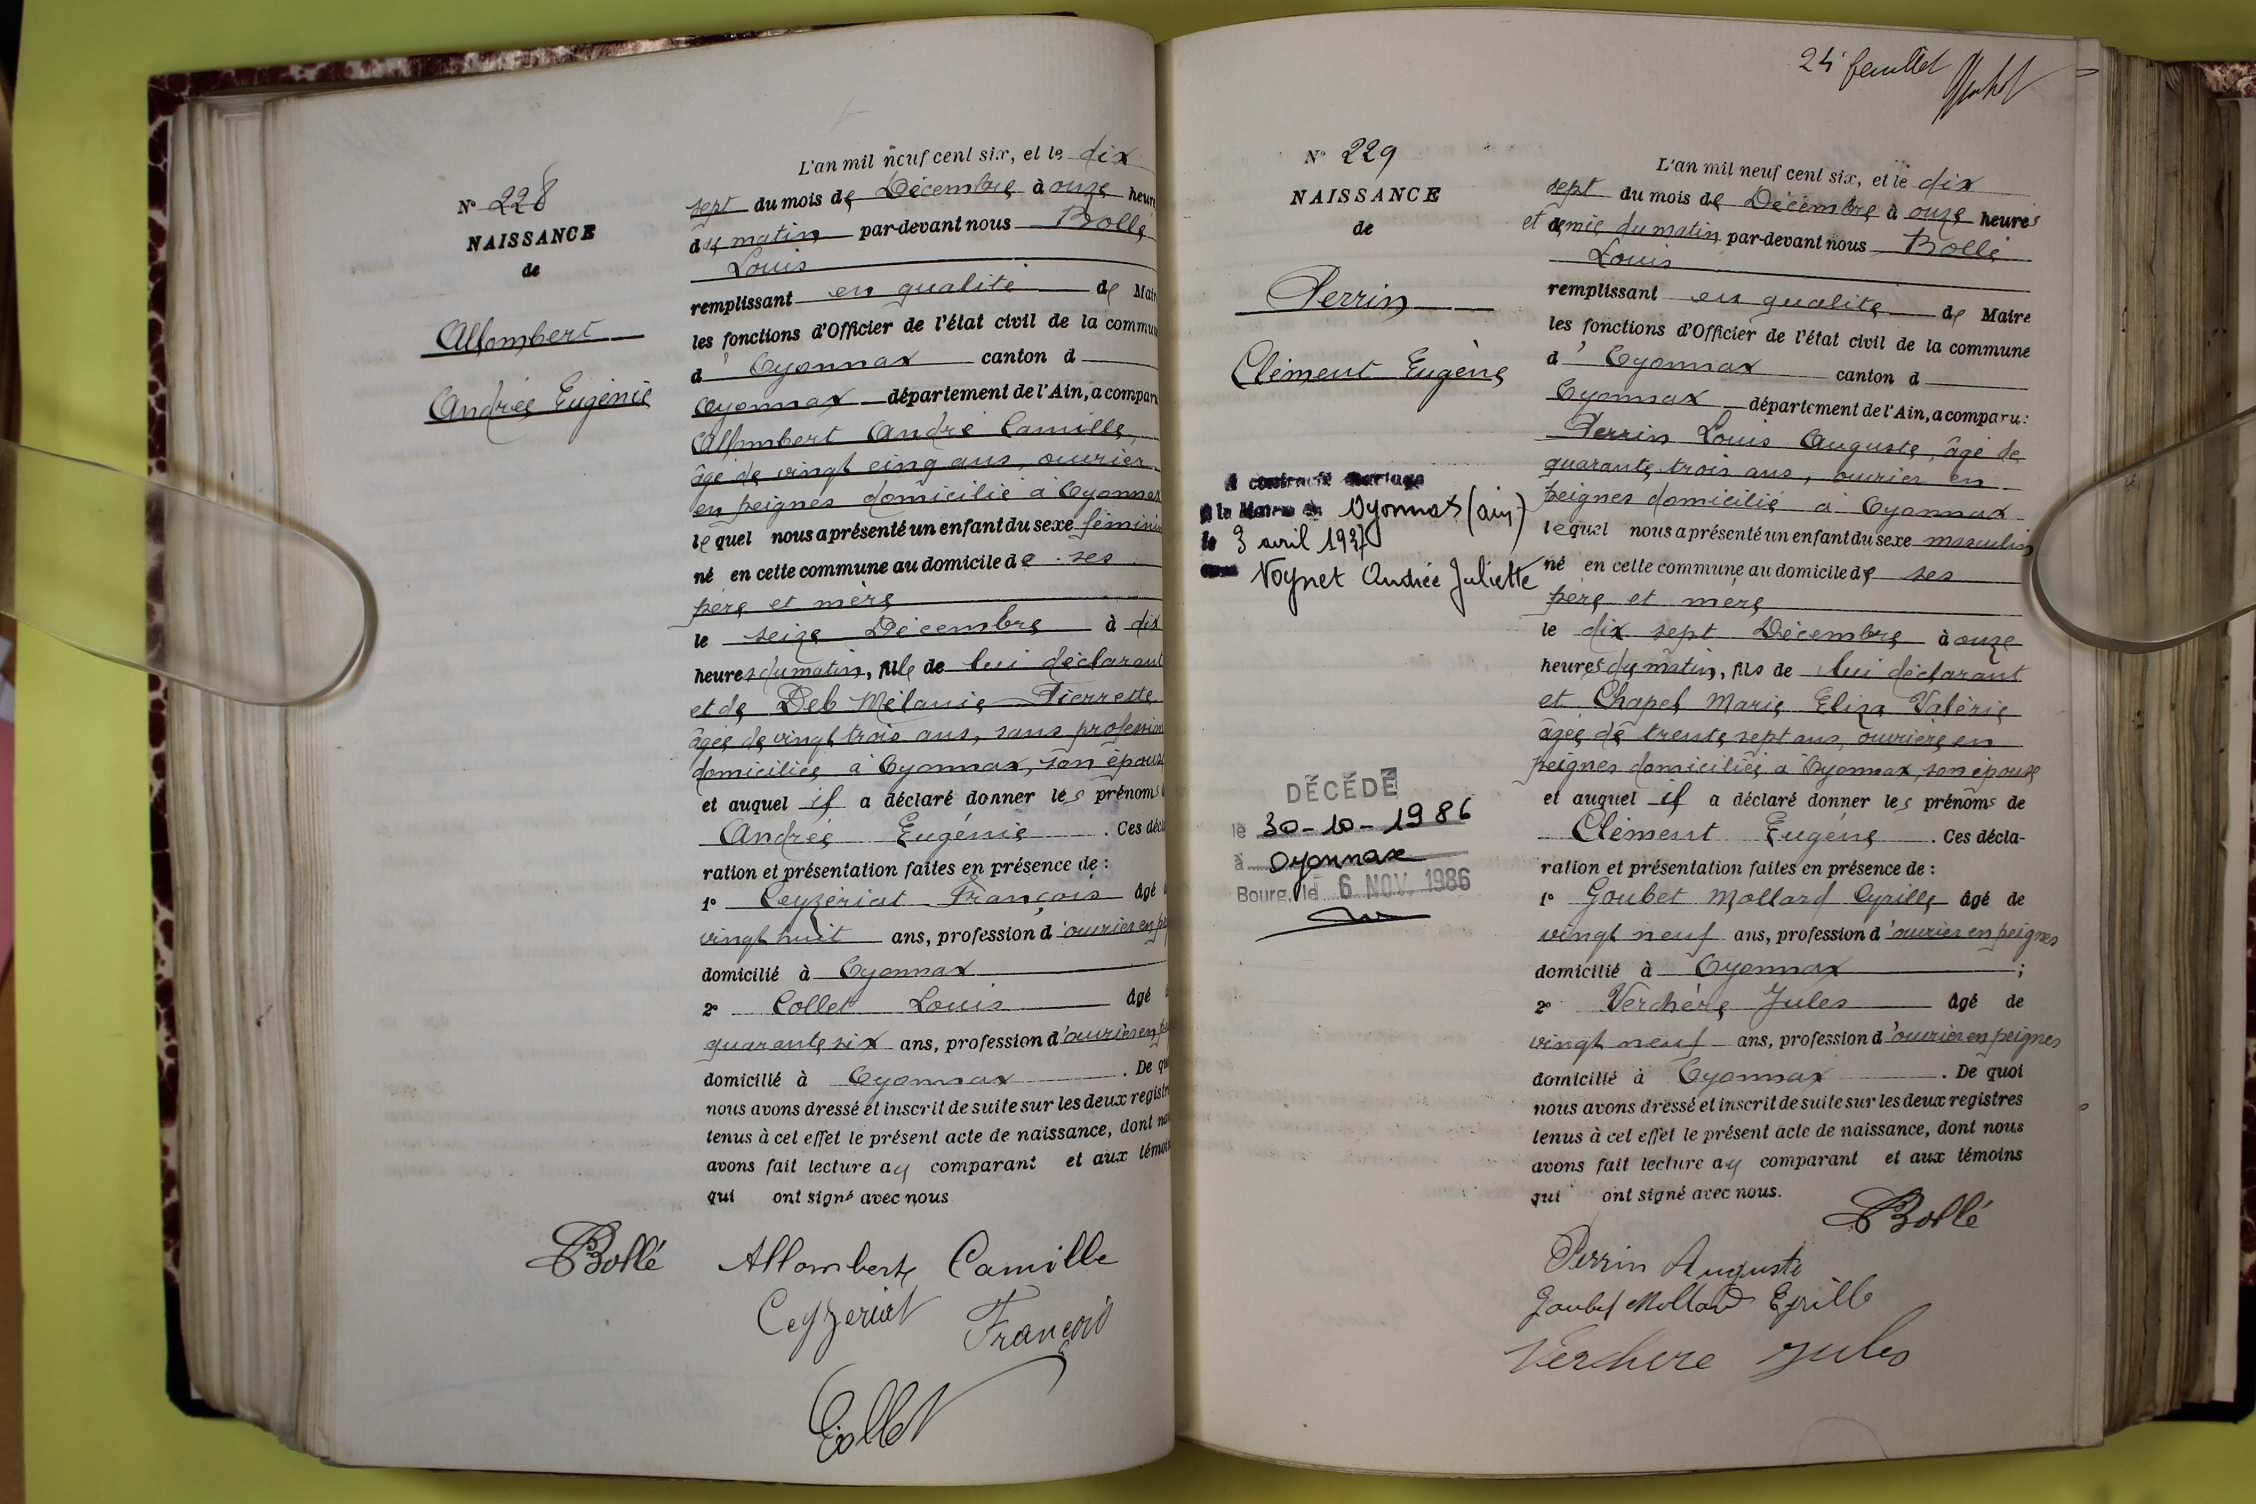 N° 228
NAISSANCE
de
Allombert
Andrée Eugénie
L'an mil neuf cent six, et le dix
sept du mois de Décembre à onze heures
du matin par-devant nous Bollé
Louis
remplissant en qualité de Maire
les fonctions d'Officier de l'état civil de la commune
d'Oyonnax canton d
Oyonnax département de l'Ain, a comparu
Allombert André Camille,
âgé de vingt cinq ans, ouvrier
en peignes domicilié à Oyonnax
lequel nous a présenté un enfant du sexe féminin
né en cette commune au domicile de ses
père et mère
le seize Décembre à dix
heures du matin, fille de lui déclarant
et de Deb Mélanie Pierrette
âgée de vingt trois ans, sans profession
domiciliée à Oyonnax, son épouse
et auquel il a déclaré donner les prénoms
Andrée Eugénie. Ces décla
ration et présentation faites en présence de :
1° Ceyzériat François âgé
vingt huit ans, profession d'ouvrier en pe
domicilié à Oyonnax
2° Collet Louis âgé
quarante six ans, profession d'ouvrier en pe
domicilié à Oyonnax. De quoi
nous avons dressé et inscrit de suite sur les deux registres
tenus à cet effet le présent acte de naissance, dont nous
avons fait lecture au comparant et aux témoins
qui ont signé avec nous
Bollé Allombert Camille
Ceyzeriat François
Collet
24e feuillet
N° 229
NAISSANCE
de
Perrin
Clément Eugène
A contracté mariage
à la Mairie de Oyonnax (ain)
le 3 avril 1937
Voynet Andrée Juliette
DÉCÉDÉ
le 30-10-1986
à Oyonnax
Bourg, le 6 NOV. 1986
L'an mil neuf cent six, et le dix
sept du mois de Décembre à onze heures
et demie du matin par-devant nous Bollé
Louis
remplissant en qualité de Maire
les fonctions d'Officier de l'état civil de la commune
d'Oyonnax canton d
Oyonnax département de l'Ain, a comparu :
Perrin Louis Auguste, âgé de
quarante trois ans, ouvrier en
peignes domicilié à Oyonnax
lequel nous a présenté un enfant du sexe masculin
né en cette commune au domicile de ses
père et mère
le dix sept Décembre à onze
heures du matin, fils de lui déclarant
et Chapel Marie Eliza Valérie
âgée de trente sept ans, ouvrière en
peignes domiciliée à Oyonnax, son épouse
et auquel il a déclaré donner les prénoms de
Clément Eugène. Ces décla-
ration et présentation faites en présence de :
1° Goubet Mollard Cyrille âgé de
vingt neuf ans, profession d'ouvrier en peignes
domicilié à Oyonnax ;
2° Verchère Jules âgé de
vingt neuf ans, profession d'ouvrier en peignes
domicilié à Oyonnax. De quoi
nous avons dressé et inscrit de suite sur les deux registres
tenus à cet effet le présent acte de naissance, dont nous
avons fait lecture au comparant et aux témoins
qui ont signé avec nous.
Bollé
Perrin Auguste
Goubet Mollard
Verchere Jules